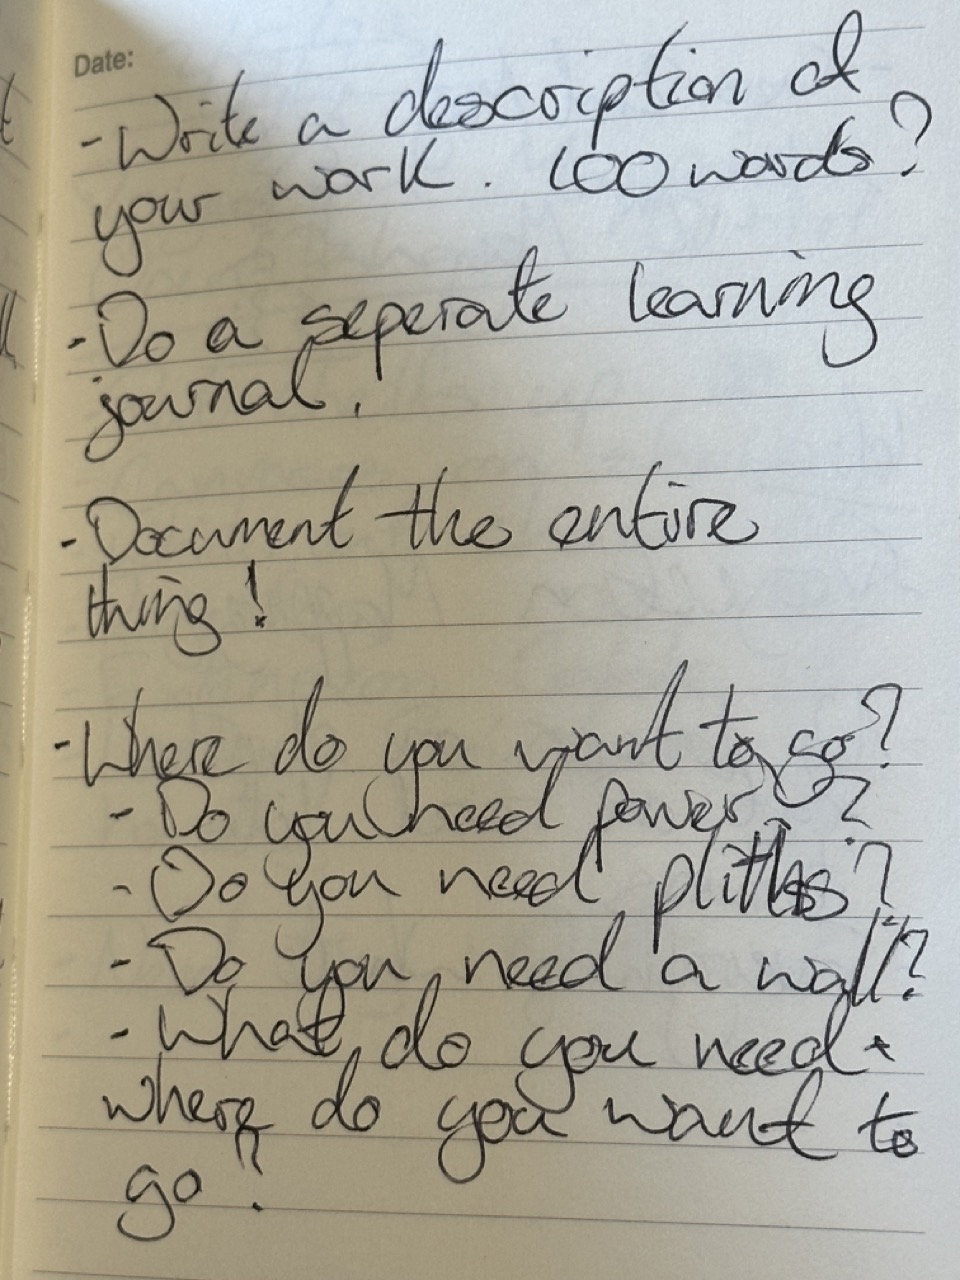 Date:
- Write a description of
your work. 100 words?
- Do a seperate learning
journal.
- Document the entire
thing!
- Where do you want to go?
- Do you need power?
- Do you need pliths?
- Do you need a wall?
- What do you need +
where do you want to
go?